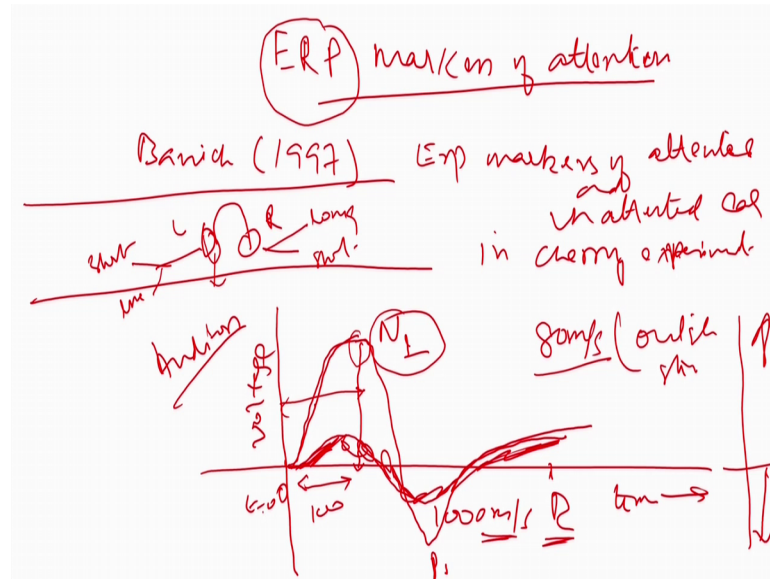 ERP markers of attention
Banich (1997)
Erp markers of attended
and
unattended
in cherry experiment
L
R
Long
short
short
Auditory
voltage
N1
80 m/s (
t=0
100
1000 m/s
R
P1